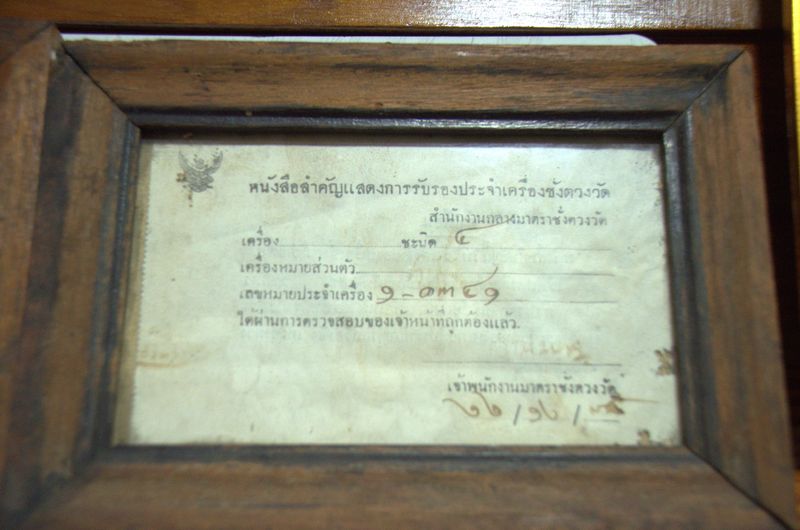 หนังสือสำคัญแสดงการรับรองประจำเครื่องชั่งตวงวัด
สำนักงานกลางมาตราชั่งตวงวัด
เครื่อง ชะนิด ๔
เครื่องหมายส่วนตัว
เลขหมายประจำเครื่อง ๑-๑๓๔๑
ได้ผ่านการตรวจสอบของเจ้าหน้าที่ถูกต้องแล้ว.
เจ้าพนักงานมาตราชั่งตวงวัด